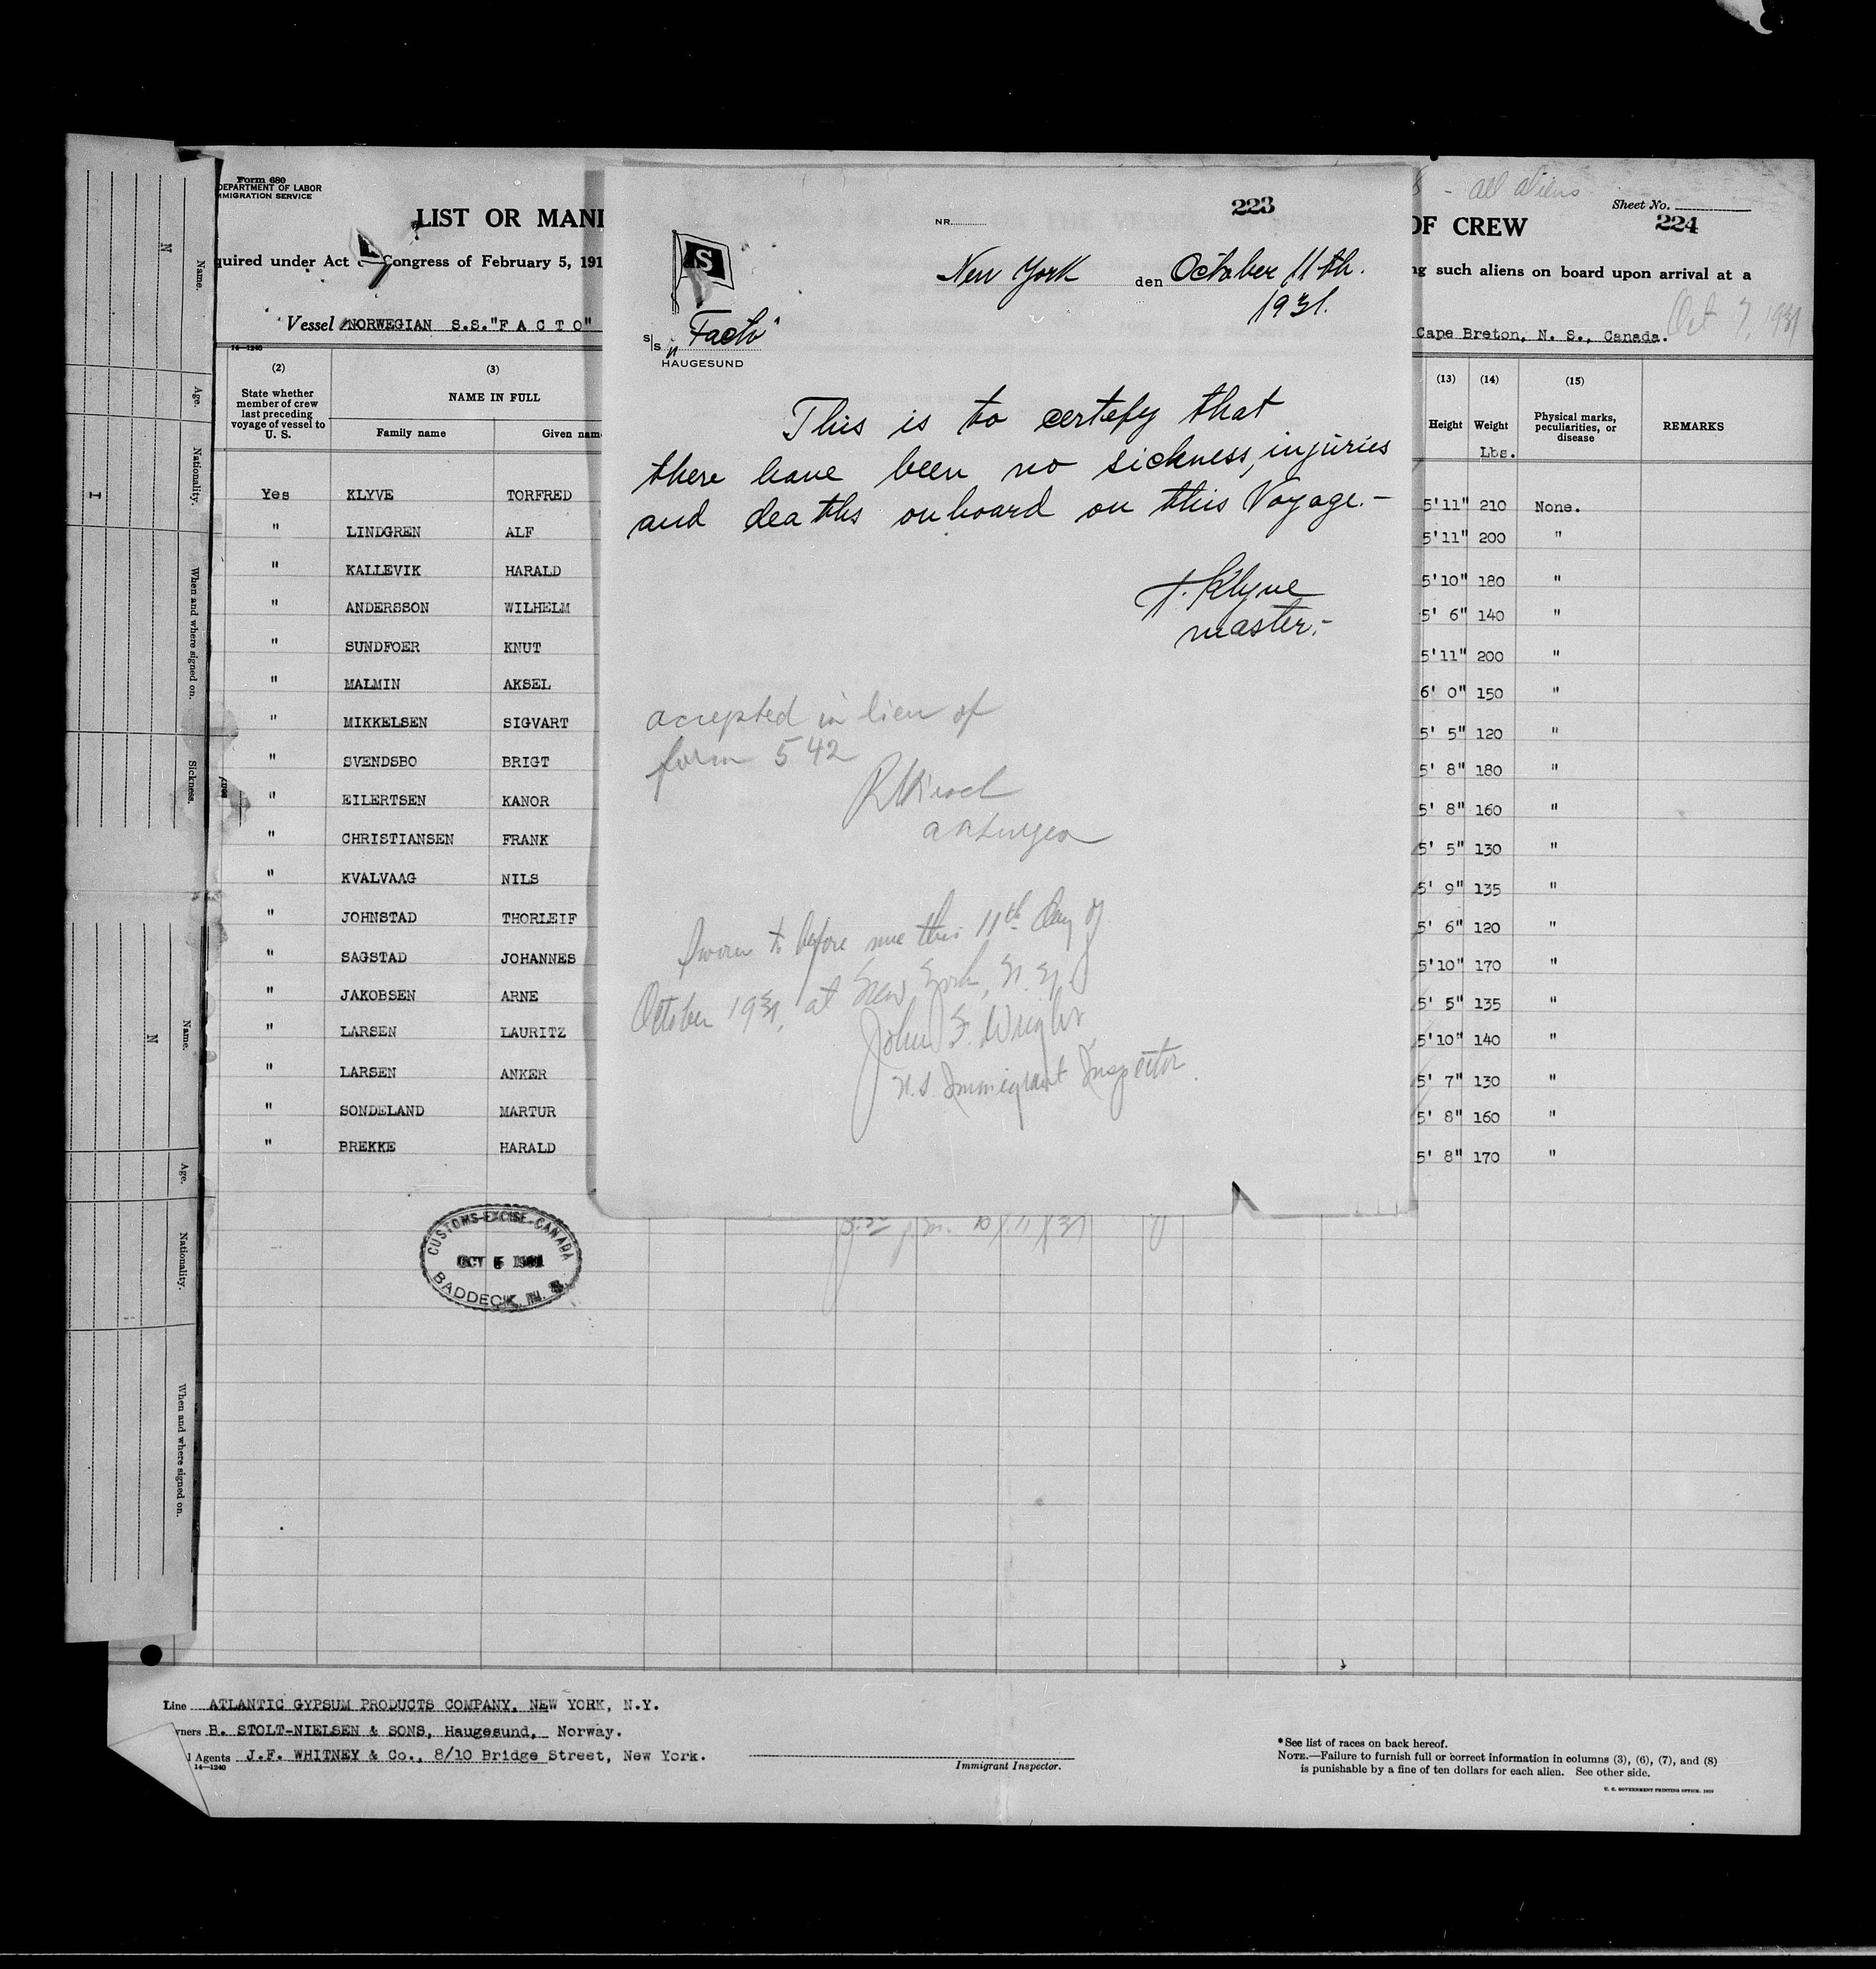 Form 680
DEPARTMENT OF LABOR
IMMIGRATION SERVICE
LIST OR MANI
quired under Act Congress of February 5, 191
Vessel NORWEGIAN S.S."F A C T O"
14—1240
(2) (3)
State whether member of crew last preceding voyage of vessel to U. S.
NAME IN FULL
Family name Given name
Yes KLYVE TORFRED
" LINDGREN ALF
" KALLEVIK HARALD
" ANDERSSON WILHELM
" SUNDFOER KNUT
" MALMIN AKSEL
" MIKKELSEN SIGVART
" SVENDSBO BRIGT
" EILERTSEN KANOR
" CHRISTIANSEN FRANK
" KVALVAAG NILS
" JOHNSTAD THORLEIF
" SAGSTAD JOHANNES
" JAKOBSEN ARNE
" LARSEN LAURITZ
" LARSEN ANKER
" SONDELAND MARTUR
" BREKKE HARALD
CUSTOMS-EXCISE-CANADA
OCT 5 1931
BADDECK, N. S.
NR.
223
S
New York den October 11th.
1931.
S/S "Facto"
HAUGESUND
This is to certefy that
there have been no sickness, injuries
and deaths onboard on this Voyage.-
T. Klyve
master.-
accepted in lieu of
form 542
Sworn to before me this 11th day of
October 1931, at New York, N. Y.
John F. Wright
U.S. Immigrant Inspector.
- all aliens
Sheet No.
OF CREW
224
ng such aliens on board upon arrival at a
Cape Breton, N. S., Canada. Oct 7, 1931
(13) (14) (15)
Height Weight Physical marks, peculiarities, or disease REMARKS
Lbs.
5'11" 210 None.
5'11" 200 "
5'10" 180 "
5' 6" 140 "
5'11" 200 "
6' 0" 150 "
5' 5" 120 "
5' 8" 180 "
5' 8" 160 "
5' 5" 130 "
5' 9" 135 "
5' 6" 120 "
5'10" 170 "
5' 5" 135 "
5'10" 140 "
5' 7" 130 "
5' 8" 160 "
5' 8" 170 "
Name.
Age.
Nationality.
When and where signed on.
Sickness.
Name.
Age.
Nationality.
When and where signed on.
Line ATLANTIC GYPSUM PRODUCTS COMPANY, NEW YORK, N.Y.
wners B. STOLT-NIELSEN & SONS, Haugesund, Norway.
l Agents J.F. WHITNEY & Co., 8/10 Bridge Street, New York.
14—1240
Immigrant Inspector.
*See list of races on back hereof.
NOTE.—Failure to furnish full or correct information in columns (3), (6), (7), and (8)
is punishable by a fine of ten dollars for each alien. See other side.